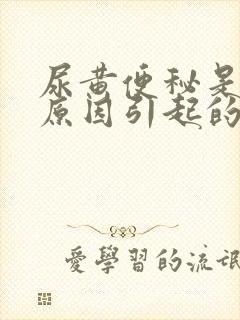 尿黄便秘是
原因引起的
愛學習的流氓